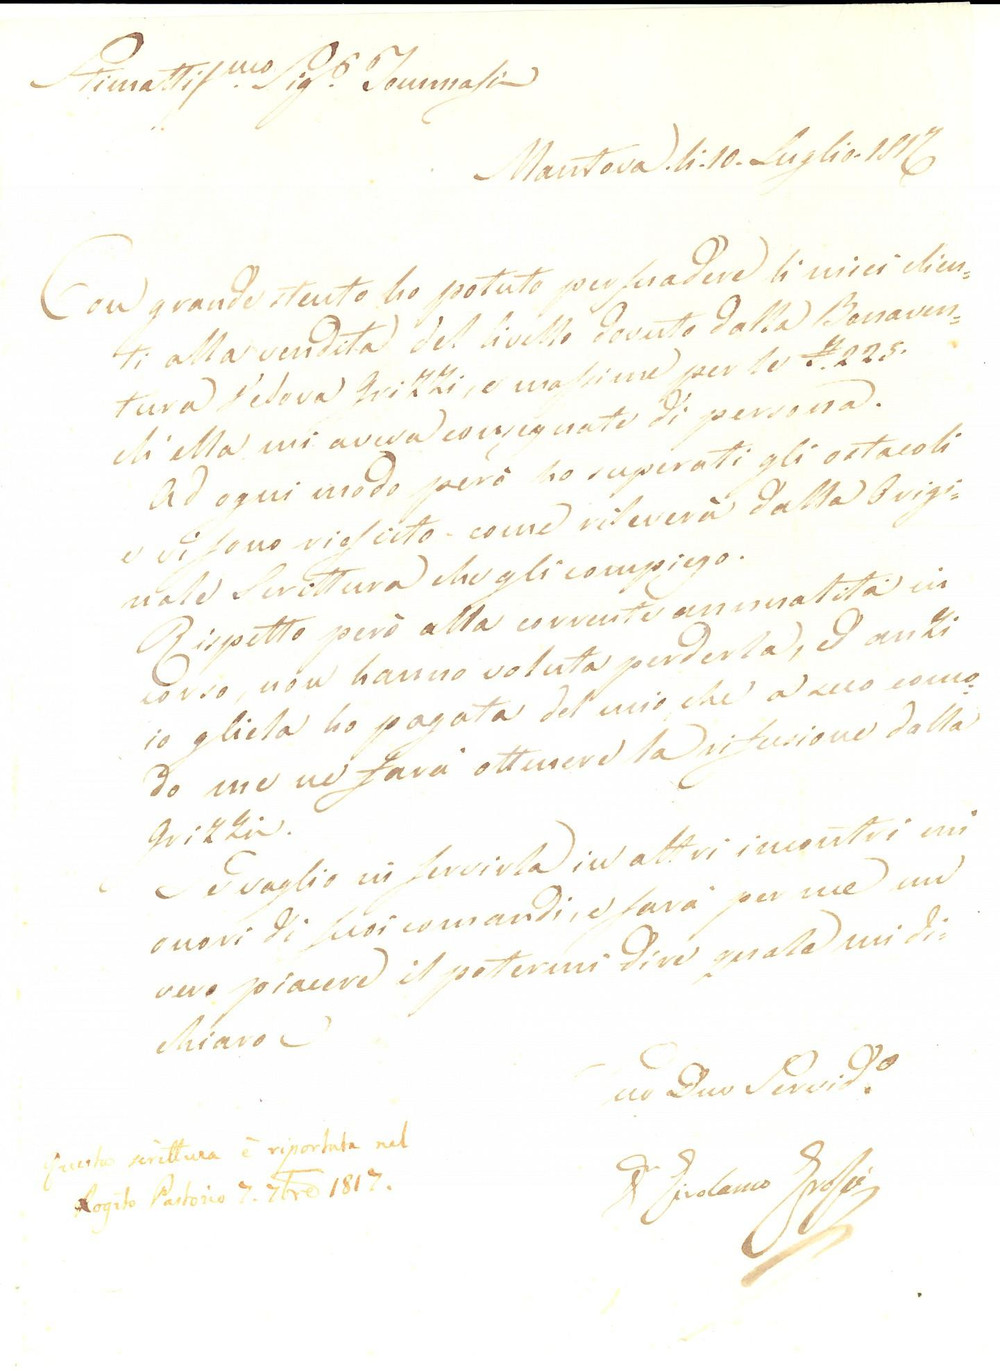 Stimatiss.mo Sig.r Tommasi
Mantova. li. 10. Luglio. 1817
Con grande stento ho potuto persuadere li miei clien=
ti alla vendita del livello dovuto dalla Bonaven=
tura Vedova Grizzi, e massime per le £. 225.
ch'ella mi aveva consegnate di persona.
Ad ogni modo però ho superati gli ostacoli
e vi sono riescito come rileverà dalla Origi=
nale Scrittura che gli compiego.
Rispetto però alla corrente annualità in
corso, non hanno voluta perderla, ed anzi
io gliela ho pagata del mio, che a suo como=
do me ne farà ottenere la rifusione dalla
Grizzi.
Se vaglio in servirla in altri incontri mi
onori di suoi comandi, e sarà per me un
vero piacere il potermi dire quale mi di=
chiaro
Suo Dmo Servid.e
D.r Girolamo
Questa scrittura è riportata nel
Rogito Pastorio 7. 7bre 1817.